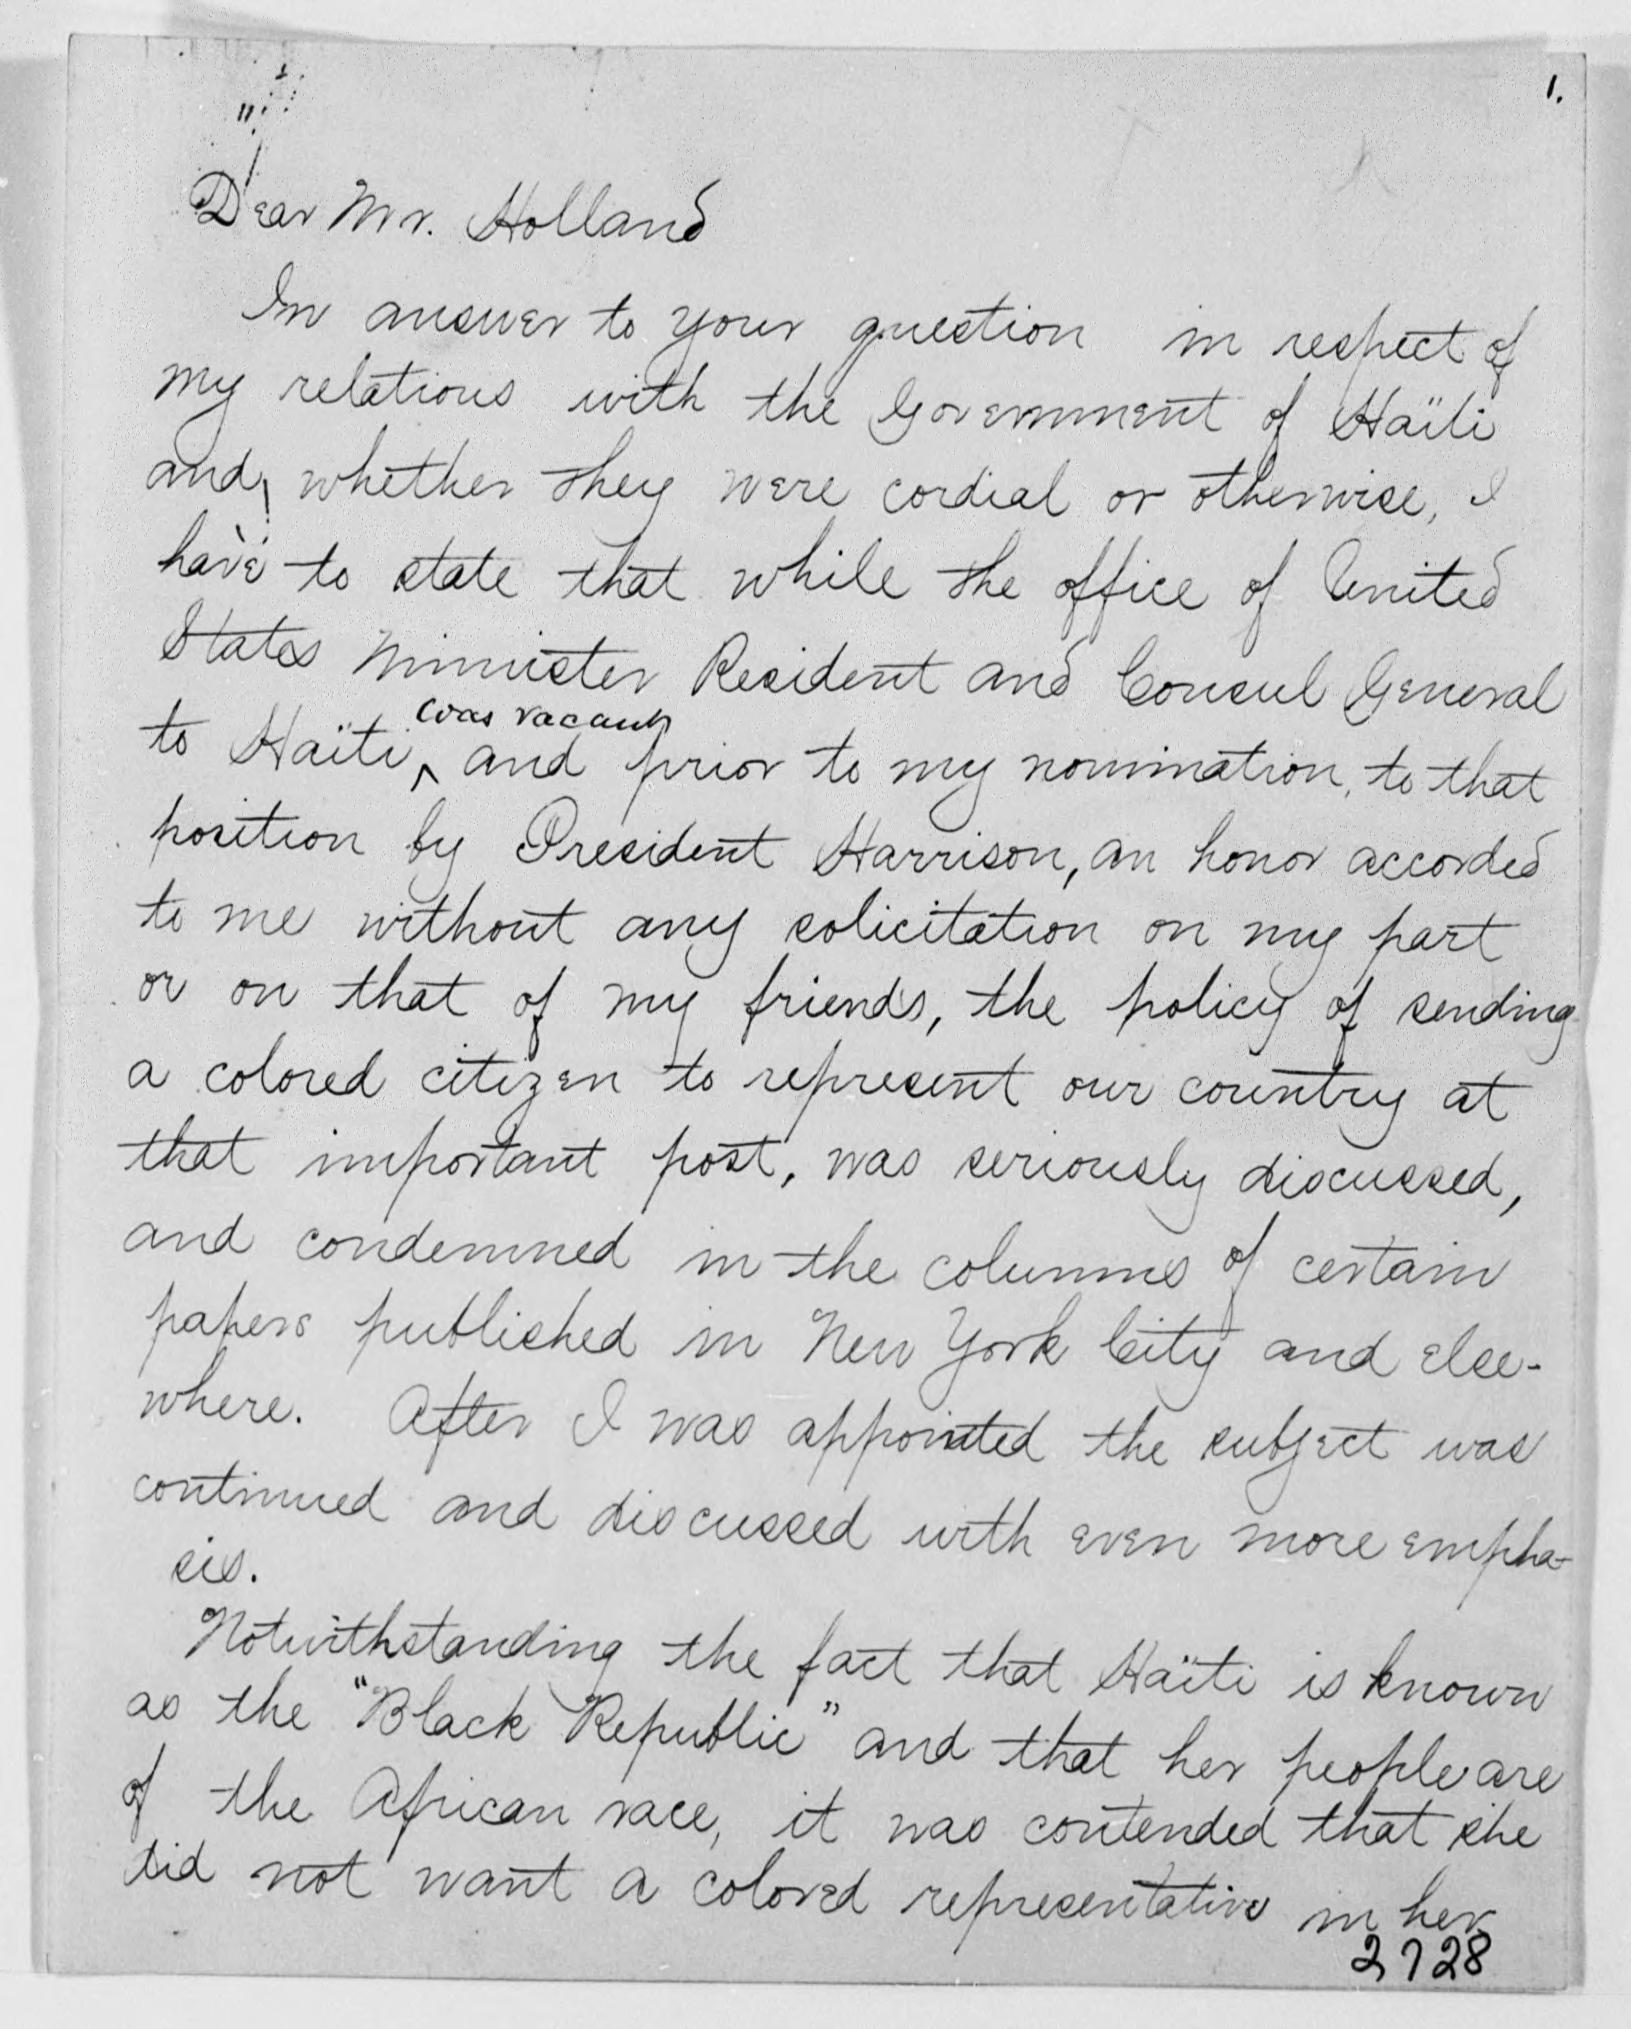 1.
Dear Mr. Holland
In answer to your question in respect of
my relations with the Government of Haïti
and, whether they were cordial or otherwise, I
have to state that while the office of United
States Minister Resident and Consul General
was vacant
to Haïti, ^ and prior to my nomination, to that
position by President Harrison, an honor accorded
to me without any solicitation on my part
or on that of my friends, the policy of sending
a colored citizen to represent our country at
that important post, was seriously discussed,
and condemned in the columns of certain
papers published in New York City and else-
where. After I was appointed the subject was
continued and discussed with even more empha-
sis.
Notwithstanding the fact that Haïti is known
as the "Black Republic" and that her people are
of the African race, it was contended that she
did not want a colored representative in her
2728